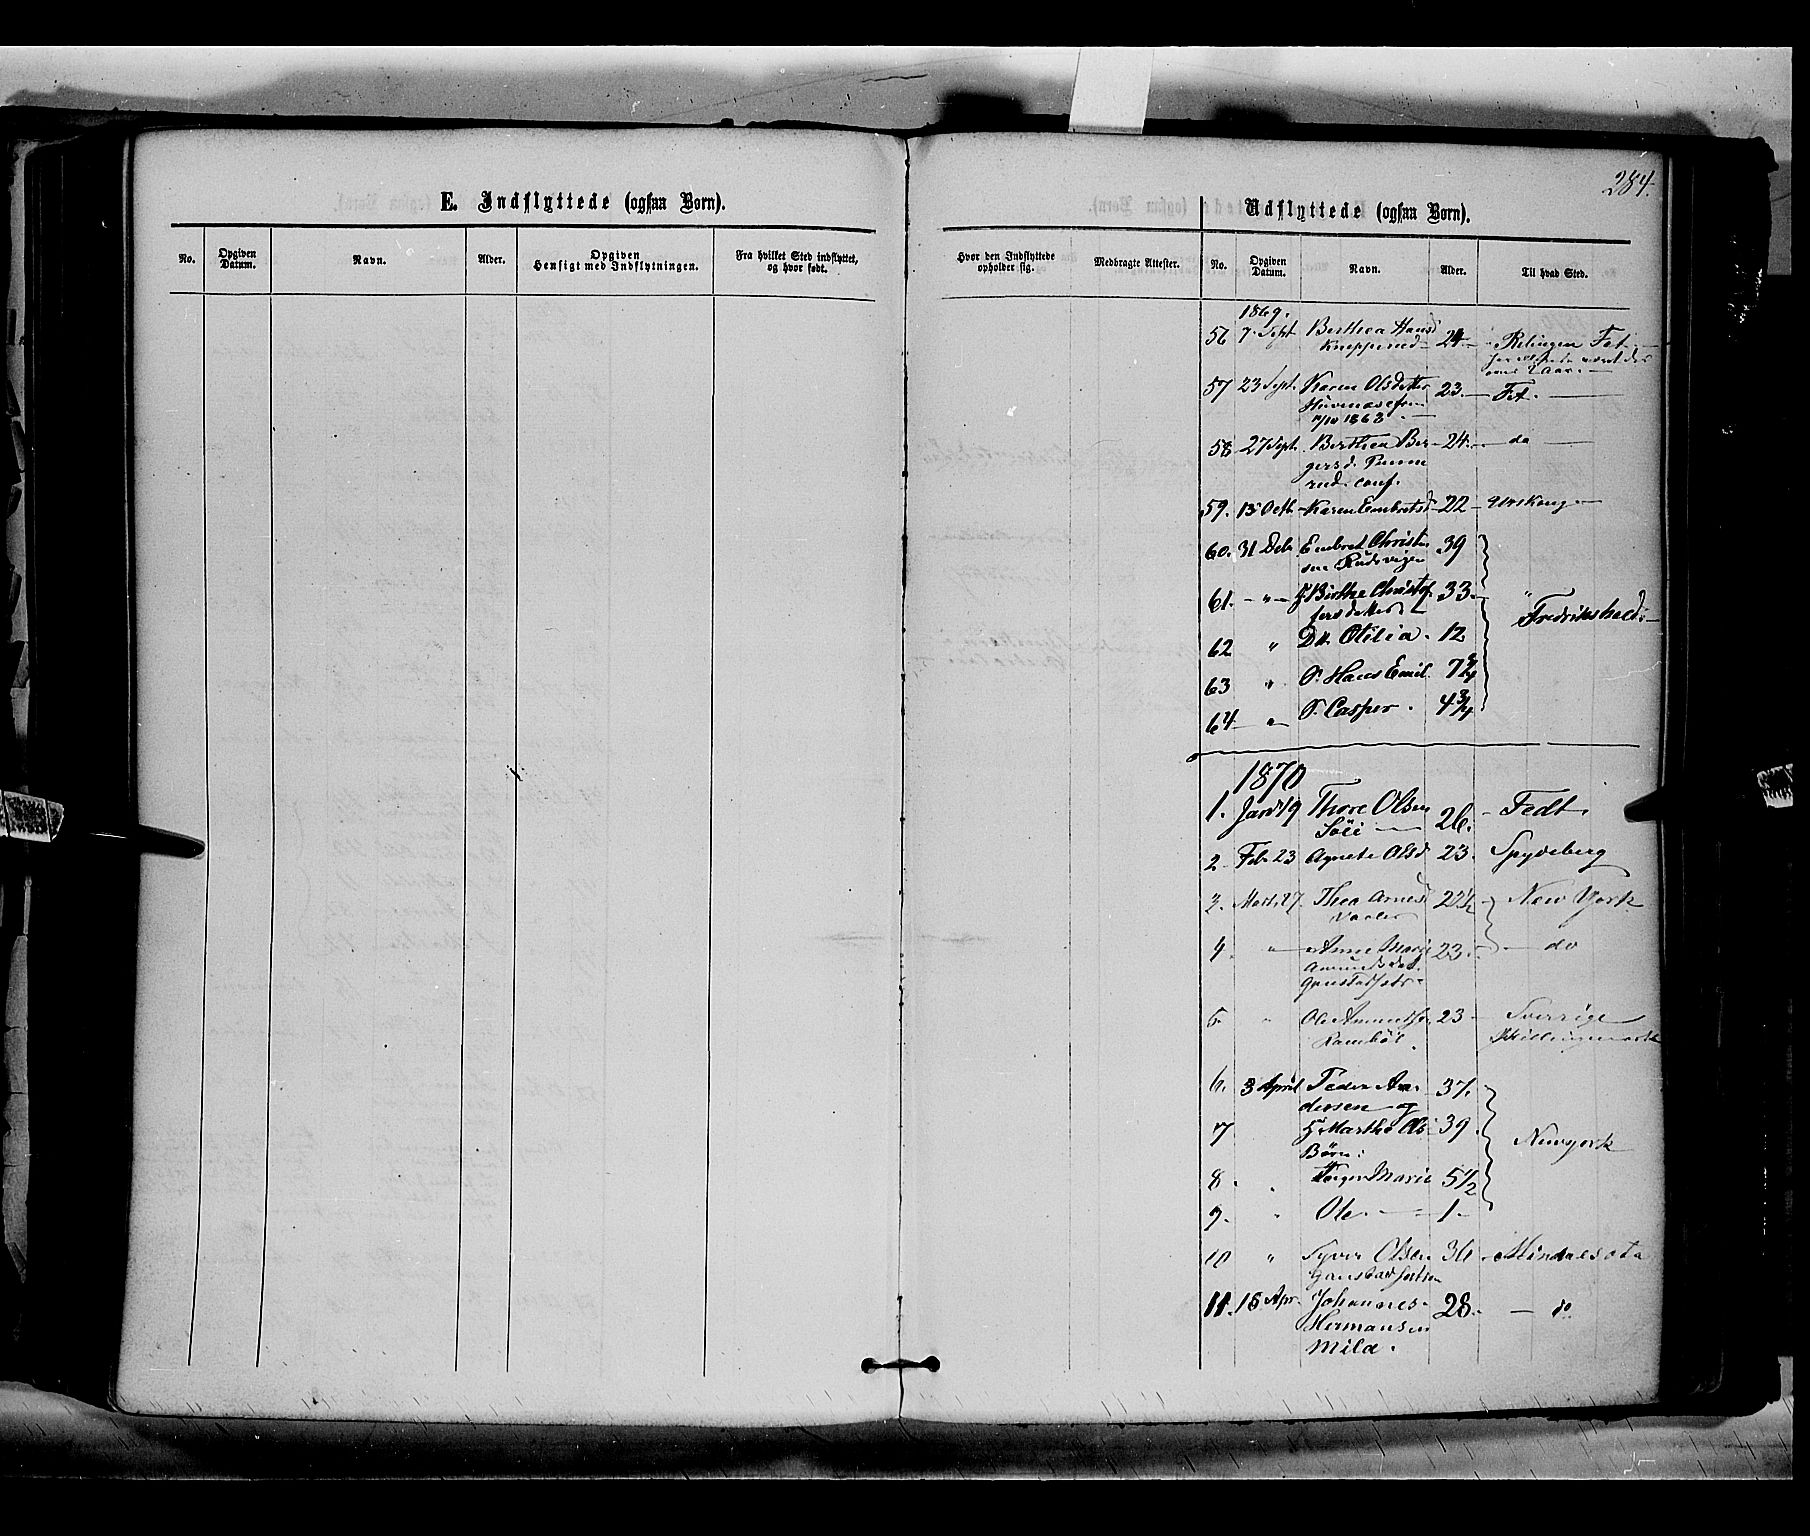 284.
E. Indflyttede (ogsaa Børn).
No.
Opgiven Datum.
Navn.
Alder.
Opgiven Hensigt med Indflytningen.
Fra hvilket Sted indflyttet, og hvor født.
Hvor den Indflyttede opholder sig.
Medbragte Attester.
Udflyttede (ogsaa Børn).
No.
Opgiven Datum.
Navn.
Alder.
Til hvad Sted.
1869.
56 7 Sept Berthea Hansd 24 Relingen Fet
57 23 Sept. Karen Olsdatter 23. Fet.
1868
58 27 Sept. Berthea Ber 24. do
gersd.
rud. conf.
59. 13 Octb Karen Embretsd 22 Urskoug
60. 31 Debr Embret Christ 39
sen Rudsvigen
61. " Birthe Christof 33.
fersdatter
Fredrikshald.
62 " Dtr. Otilia. 12
63 " S. Hans Emil. 7 3/4
64 " S. Casper. 4 3/4
1870
1. Jan 19 Thore Olsen 26. Fedt.
2 Feb. 23 Agnete Olsd 23. Spydeberg
3. Mart. 27. Thea Arnesd 22 1/2 New York
4 " Anne Marie 23. do
Amundsdat.
5. " Ole 23 Sverrige
6. 3 April Peder An 37.
dersen og
7 Marthe Ols 39
Børn:
Newyork
8. Marie 5 1/2
9. " Ole. 1
10 " Syver Olsen 36 Minnesota
11. 15 Apr. Johannes 28. do
Hermansen
Mila.